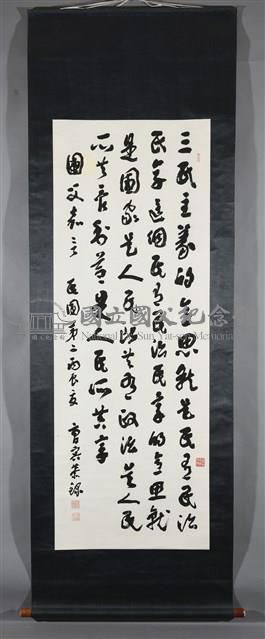 三民主義的意思就是民有民治
民享這個民有民治民享的意思就
是國家是人民所共有政治是人民
所共管利益是人民所共享
國父嘉言 民國第二丙辰夏 曹容恭錄
國立國父紀念館
National Dr. Sun Yat-sen Memorial Hall